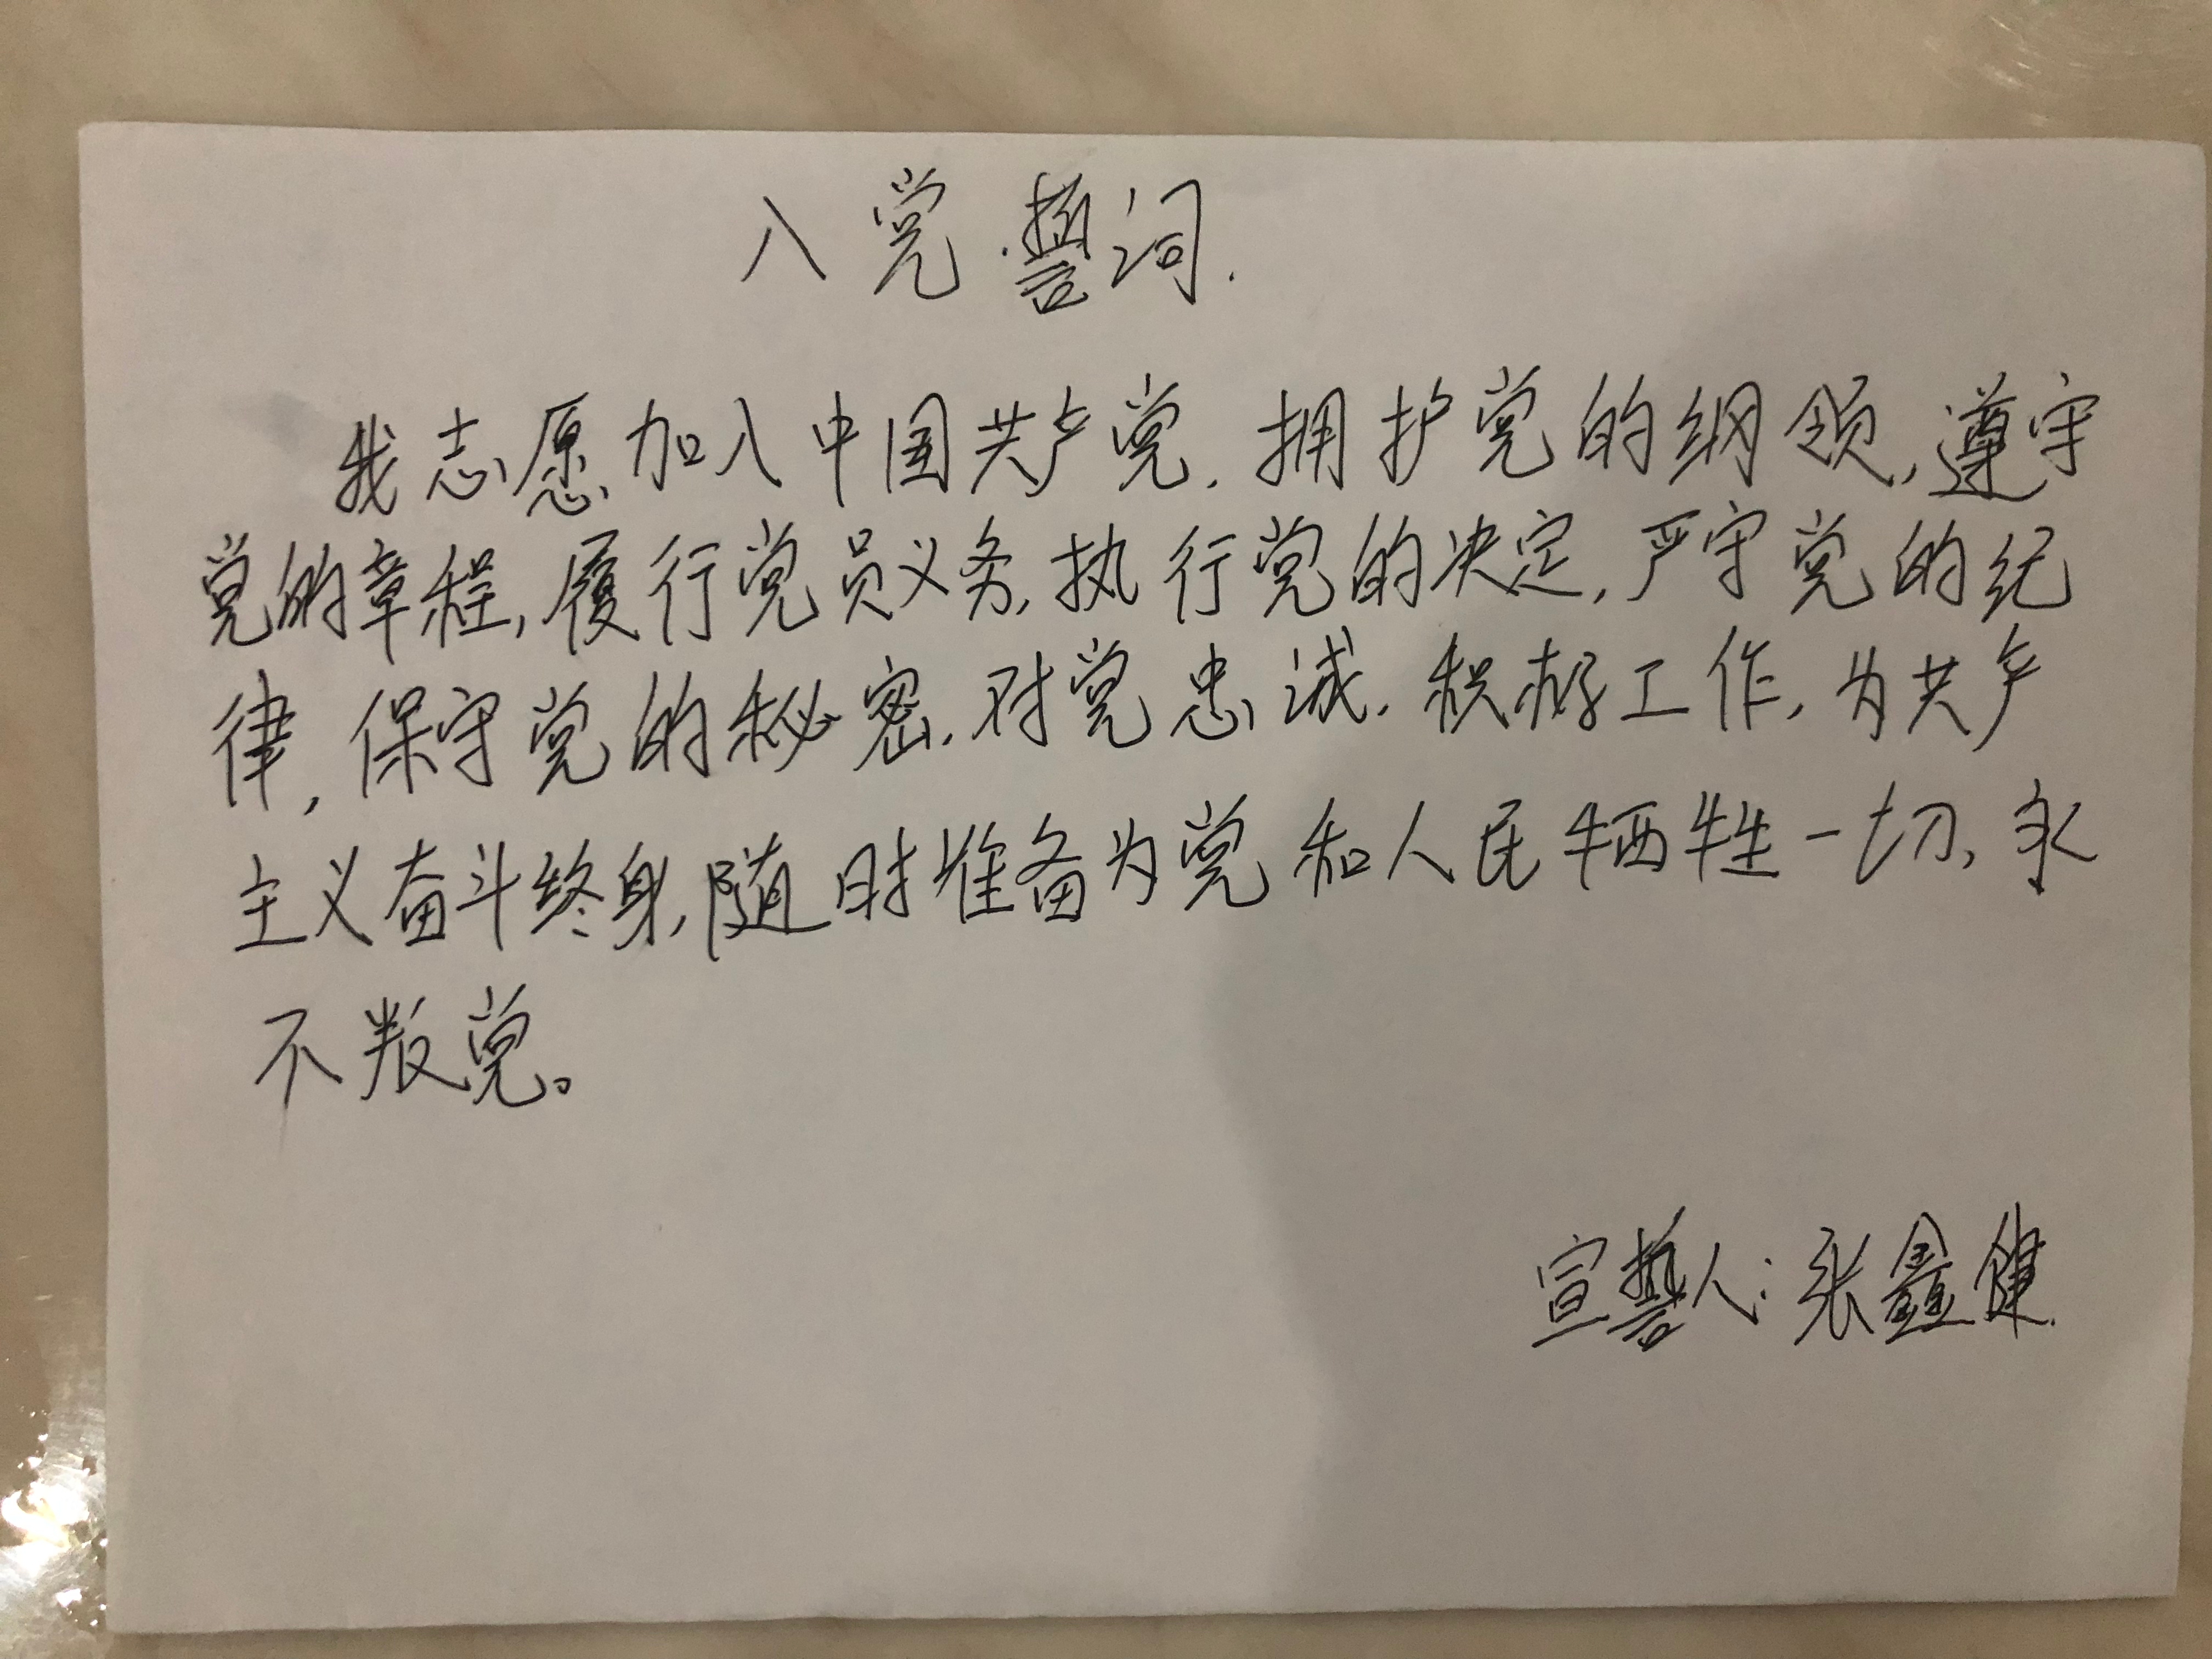 入党誓词.
我志愿加入中国共产党.拥护党的纲领,遵守
党的章程,履行党员义务,执行党的决定,严守党的纪
律,保守党的秘密.对党忠诚.积极工作,为共产
主义奋斗终身,随时准备为党和人民牺牲一切,永
不叛党。
宣誓人:张鑫健.